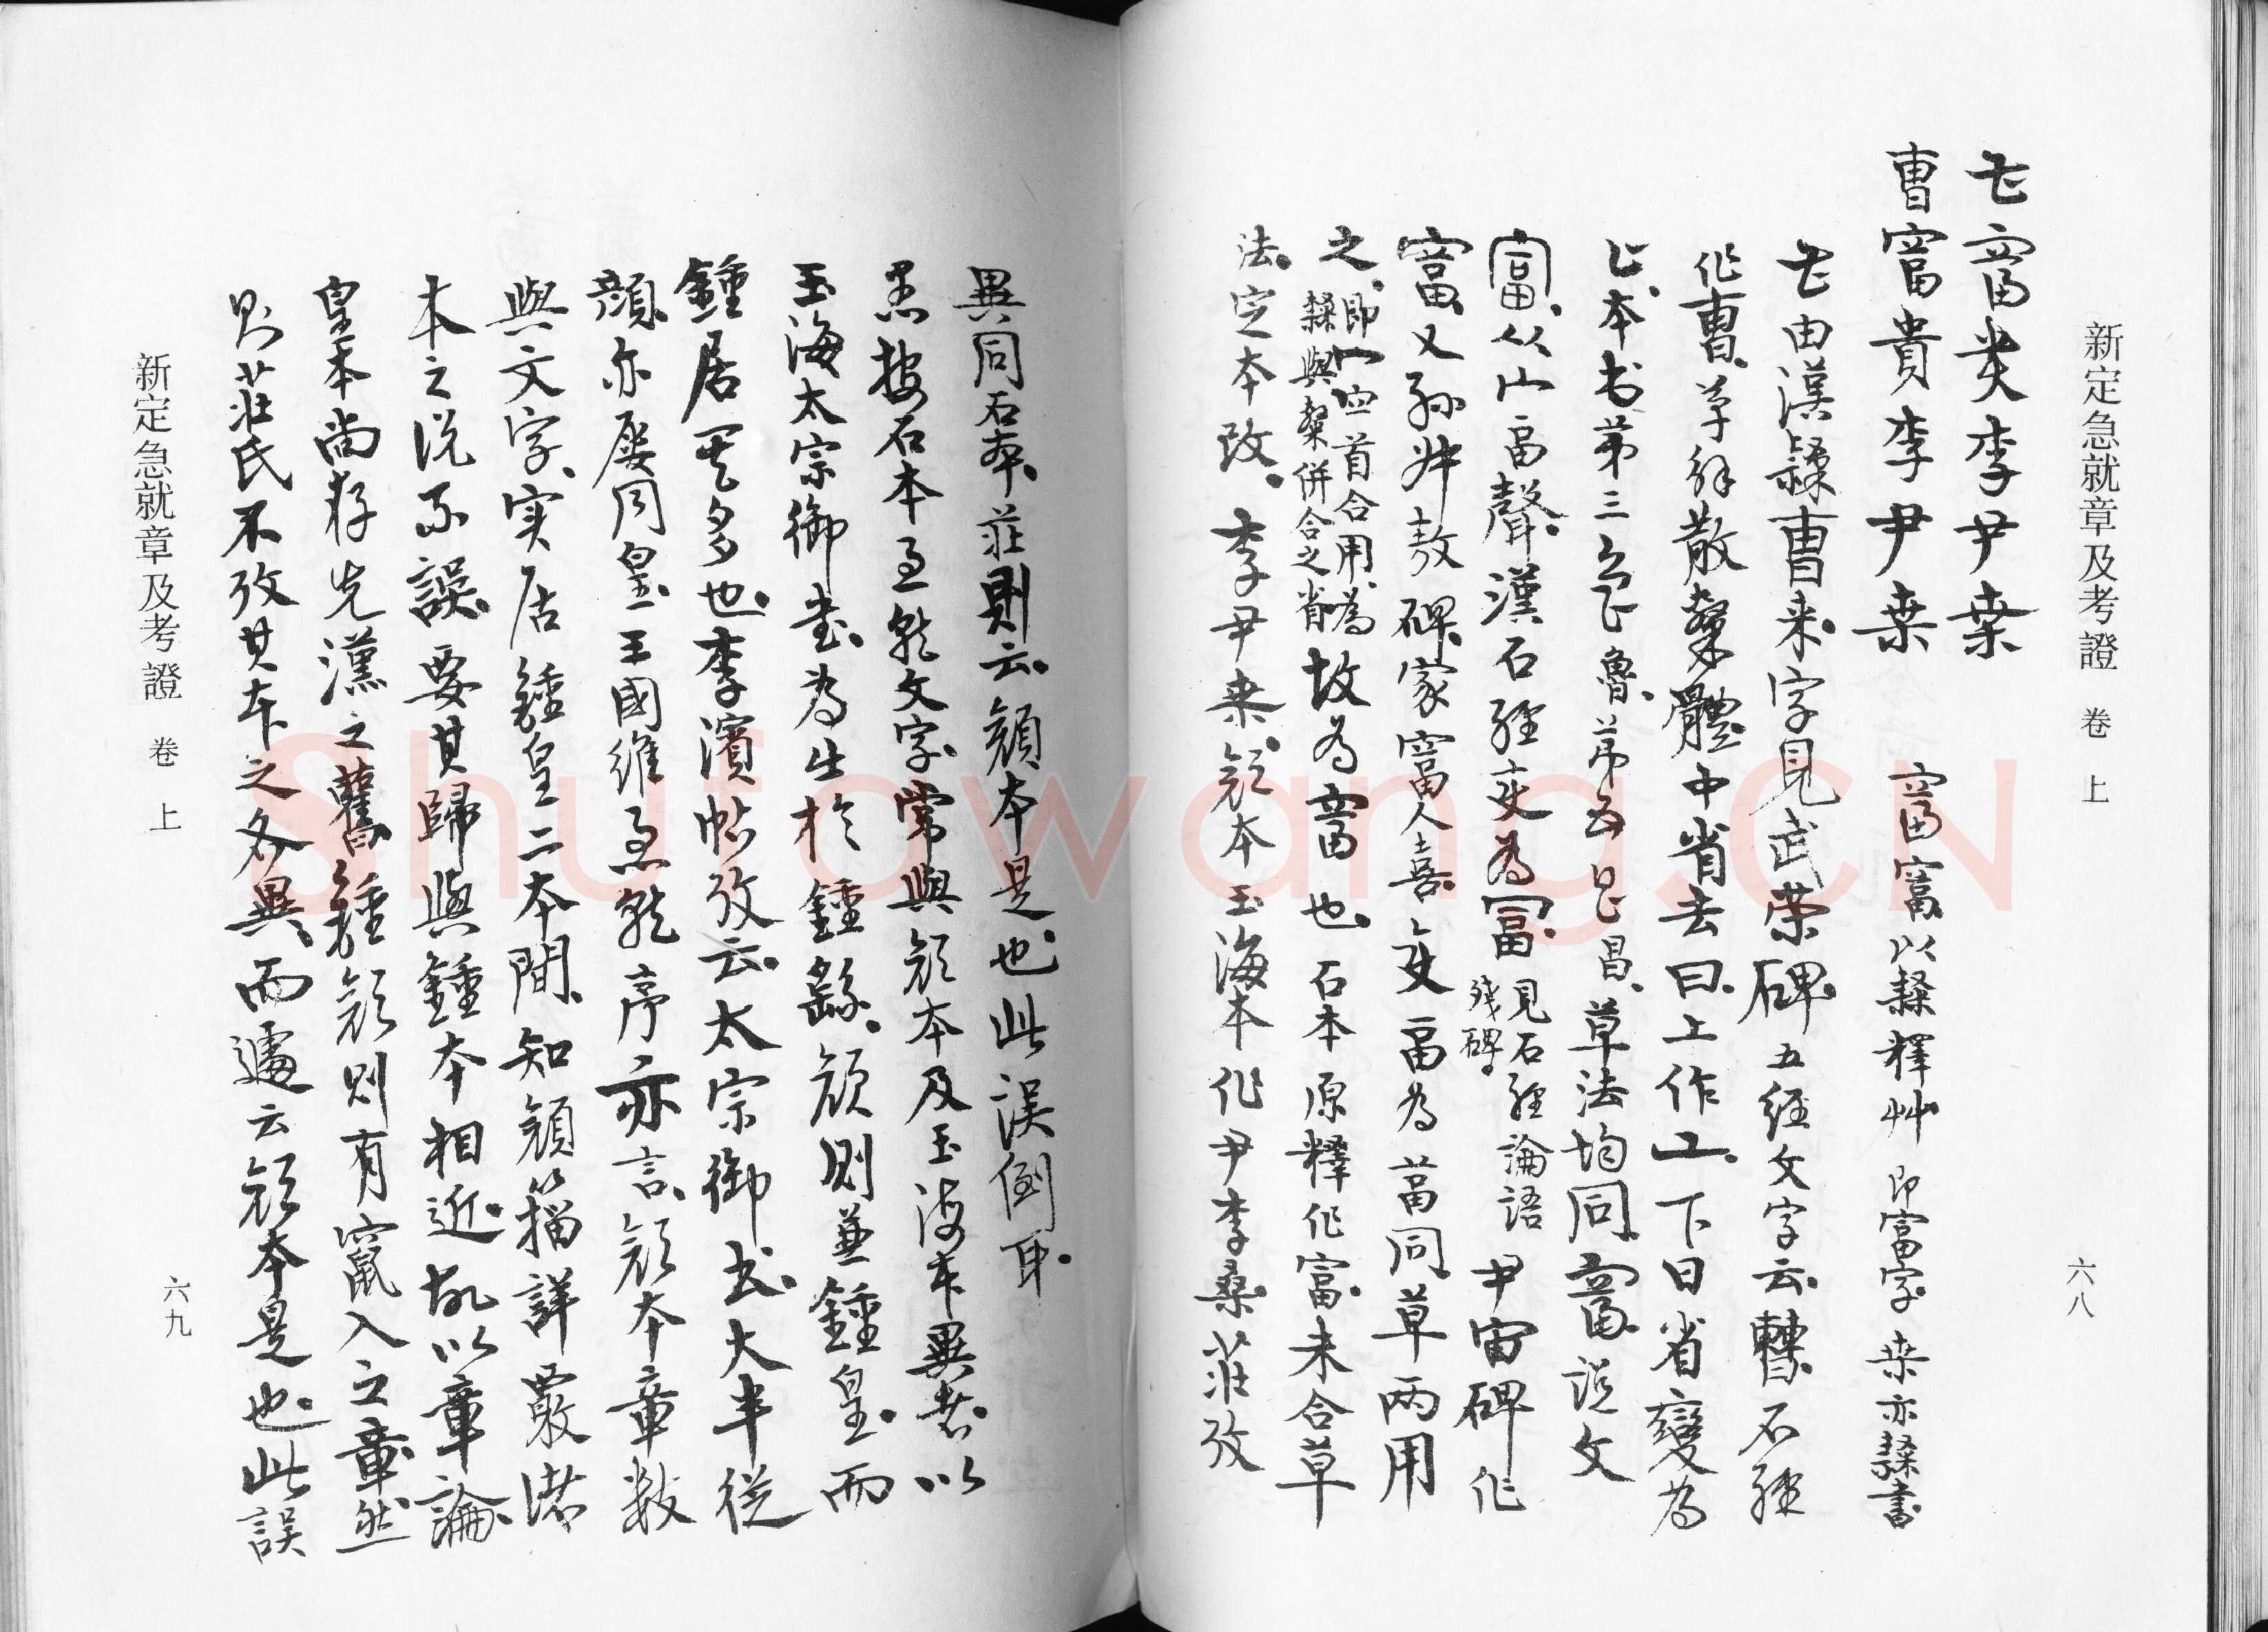 新定急就章及考證 卷上
六八
富貴李尹桒
曹富貴李尹桒 富富以隸釋艸 即富字 桒亦隸書
由漢隸曹来字見武荣碑五经文字云曹石經
作曹草解散隸體中省去曰上作 下日省變為
本书第三 魯苐五 昌草法均同富說文
富从宀畐聲漢石經变為冨見石經論語残碑尹宙碑作
富又孙叔敖碑家富人喜变畐為 同草两用
之即 首合用為隸與槩併合之省故為富也石本原釋作富未合草
法定本改李尹桒顔本玉海本作尹李桑莊攷
異同石本莊則云顔本是也此误倒耳
愚按石本急就文字常與顔本及玉海本異者以
玉海太宗御書為出於鍾繇顔則兼鍾皇而
鍾居其多也李濱帖攷云太宗御书大半從
顔亦屡同皇王國維急就序亦言顔本章数
與文字实居鍾皇二本間知顔籀詳覈诸
本之说不誤要其歸與鍾本相近故以章論
皇本尚存先漢之舊鍾顔則有竄入之章然
則莊氏不攷其本之各異而遽云顔本是也此誤
新定急就章及考證 卷上
六九
Shufawang.CN